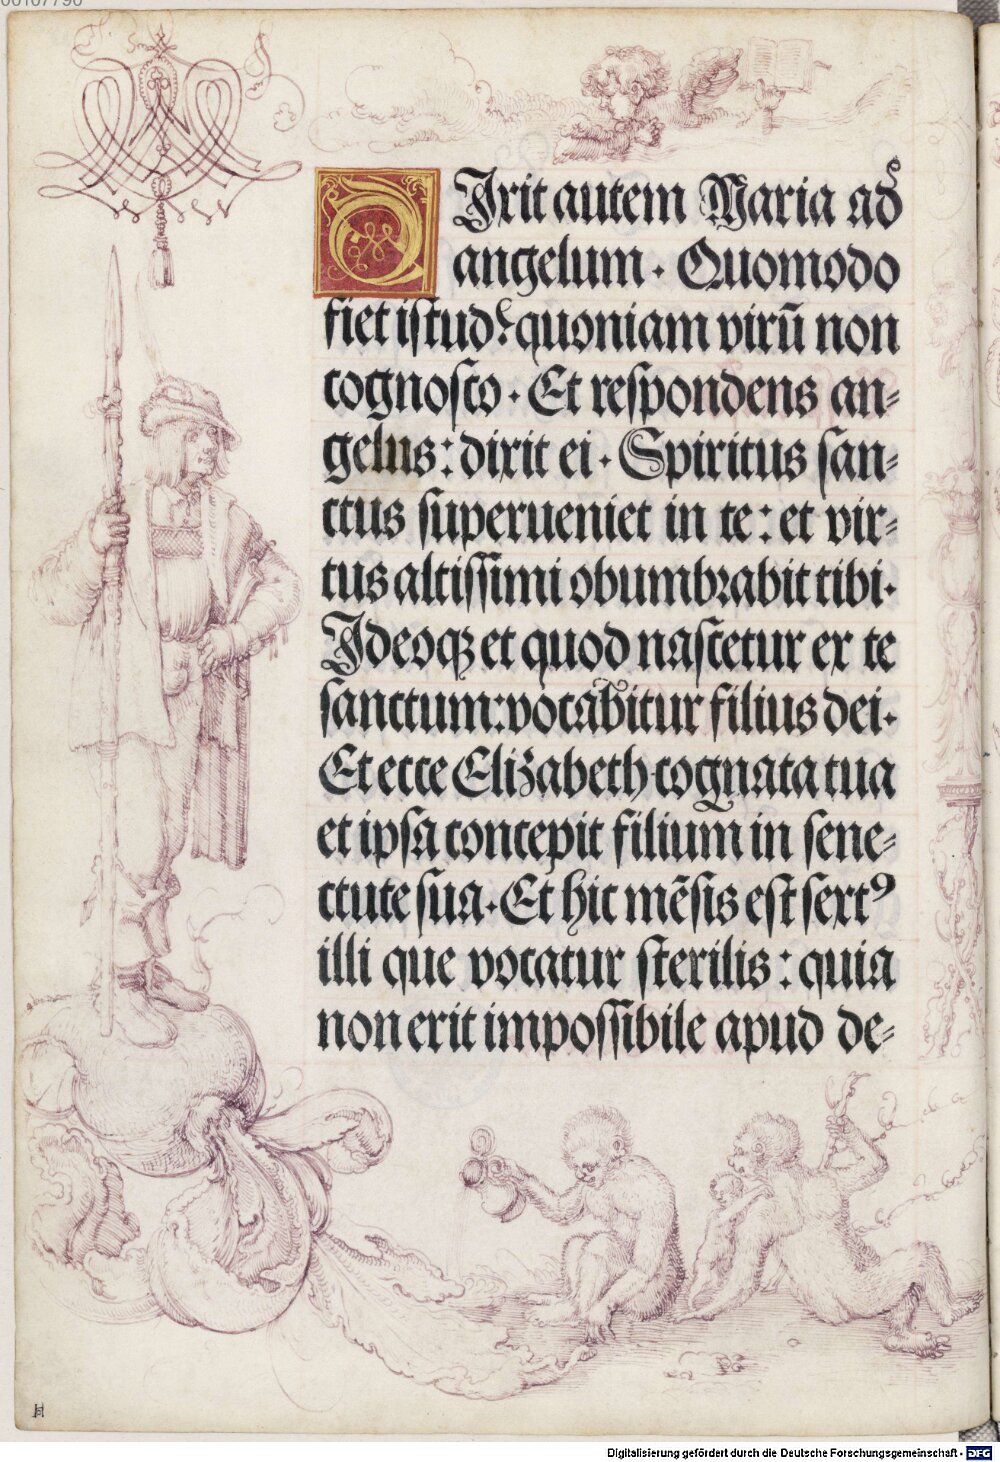 DIxit autem Maria ad
angelum. Quomodo
fiet istud? quoniam virū non
cognosco. Et respondens an-
gelus: dixit ei. Spiritus san-
ctus superueniet in te: et vir-
tus altissimi obumbrabit tibi.
Ideoqꝫ et quod nascetur ex te
sanctum: vocabitur filius dei.
Et ecce Elizabeth cognata tua
et ipsa concepit filium in sene-
ctute sua. Et hic mēsis est sextꝰ
illi que vocatur sterilis: quia
non erit impossibile apud de-
Digitalisierung gefördert durch die Deutsche Forschungsgemeinschaft - DFG